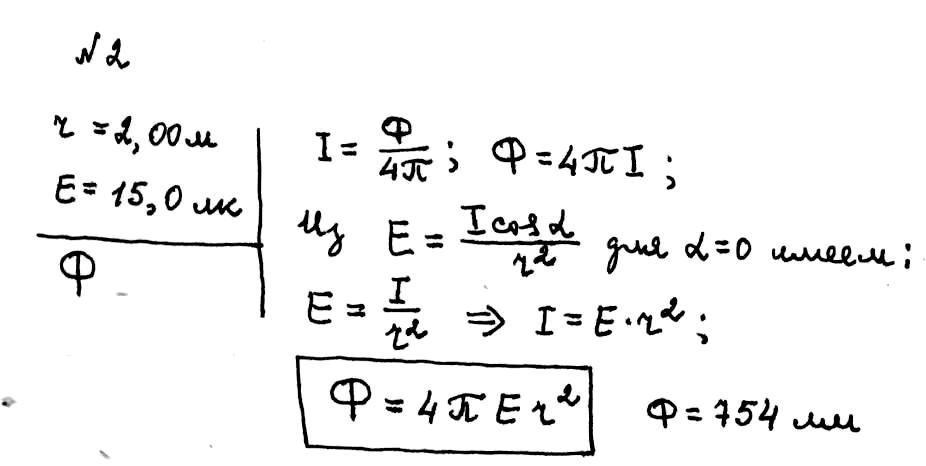 № 2
r = 2,00 м
E = 15,0 лк
Ф
I = Ф/4π; Ф = 4πI;
Из E = I cos α/r² для α = 0 имеем:
E = I/r² ⇒ I = E·r²;
Ф = 4πEr² Ф = 754 лм